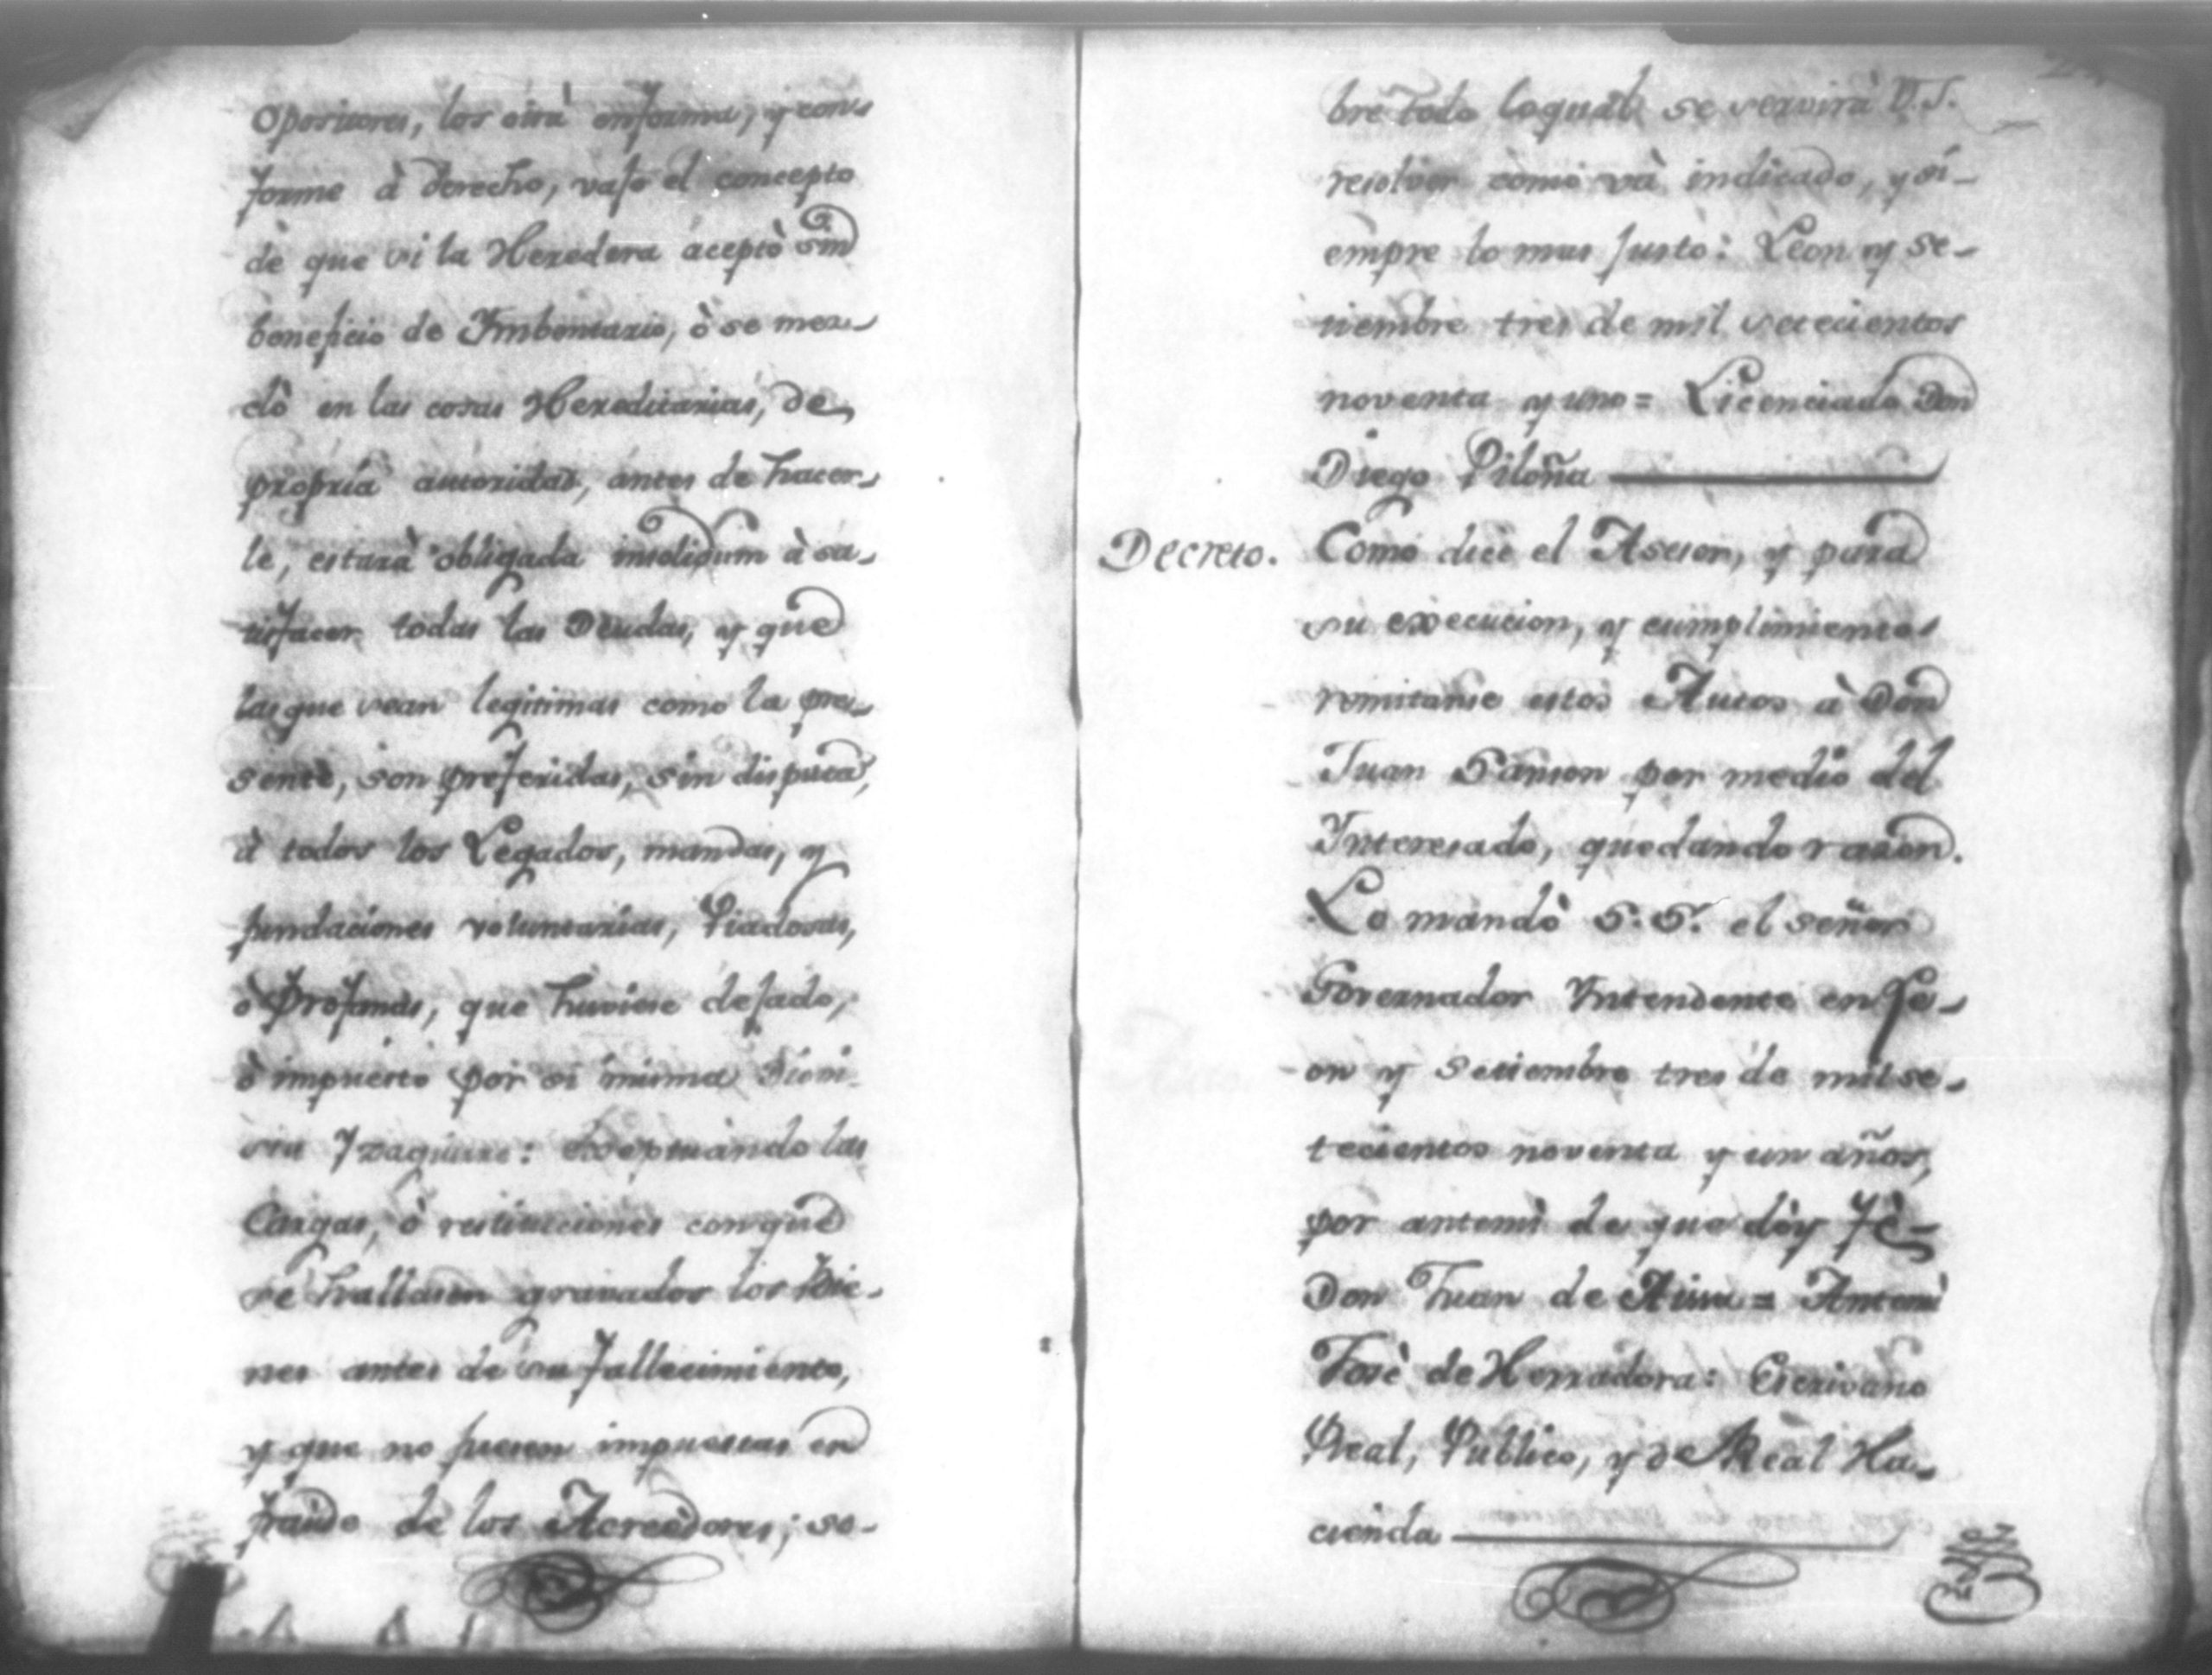 Opositores, los oirà enforma, y con-
forme à derecho, vajo el concepto
dè que si la Heredera aceptò sin
beneficio de Ymbentario, ò se mez-
clò en las cosas Hereditarias, de
propria autoridad, antes de hacer-
le, estarà obligada insolidum à sa-
tisfacer todas las Deudas, y que
las que sean legitimas como la pre-
sente, son preferidas, sin disputa,
à todos los Legados, mandas, y
fundaciones voluntarias, Piadosas,
ò Profanas, que huviese dejado,
ò impuesto por si misma Dioni-
sia Yzaguirre: exceptuando las
Cargas, ò restituciones con que
se hallasen gravados los Bie-
nes antes de su fallecimiento,
y que no fuesen impuestas en
fraude de los Acreèdores; so-
bre todo loqual se servirà V.S.
resolver como và indicado, y si-
empre lo mas justo: Leon y Se-
tiembre tres de mil setecientos
noventa y uno= Licenciado Don
Diego Piloña
Decreto. Como dice el Asesor, y para
su execucion, y cumplimiento
remitanse estos Autos à Don
Juan Samson por medio del
Interesado, quedando razon.
Lo mandò S.S. el señor
Governador Yntendente en Le-
on y Setiembre tres de mil se-
tecientos noventa y un años,
por antemi de que dòy fè=
Don Juan de = Antemi
Josè de Herradora: Escrivano
Real, Publico, y de Real Ha-
cienda